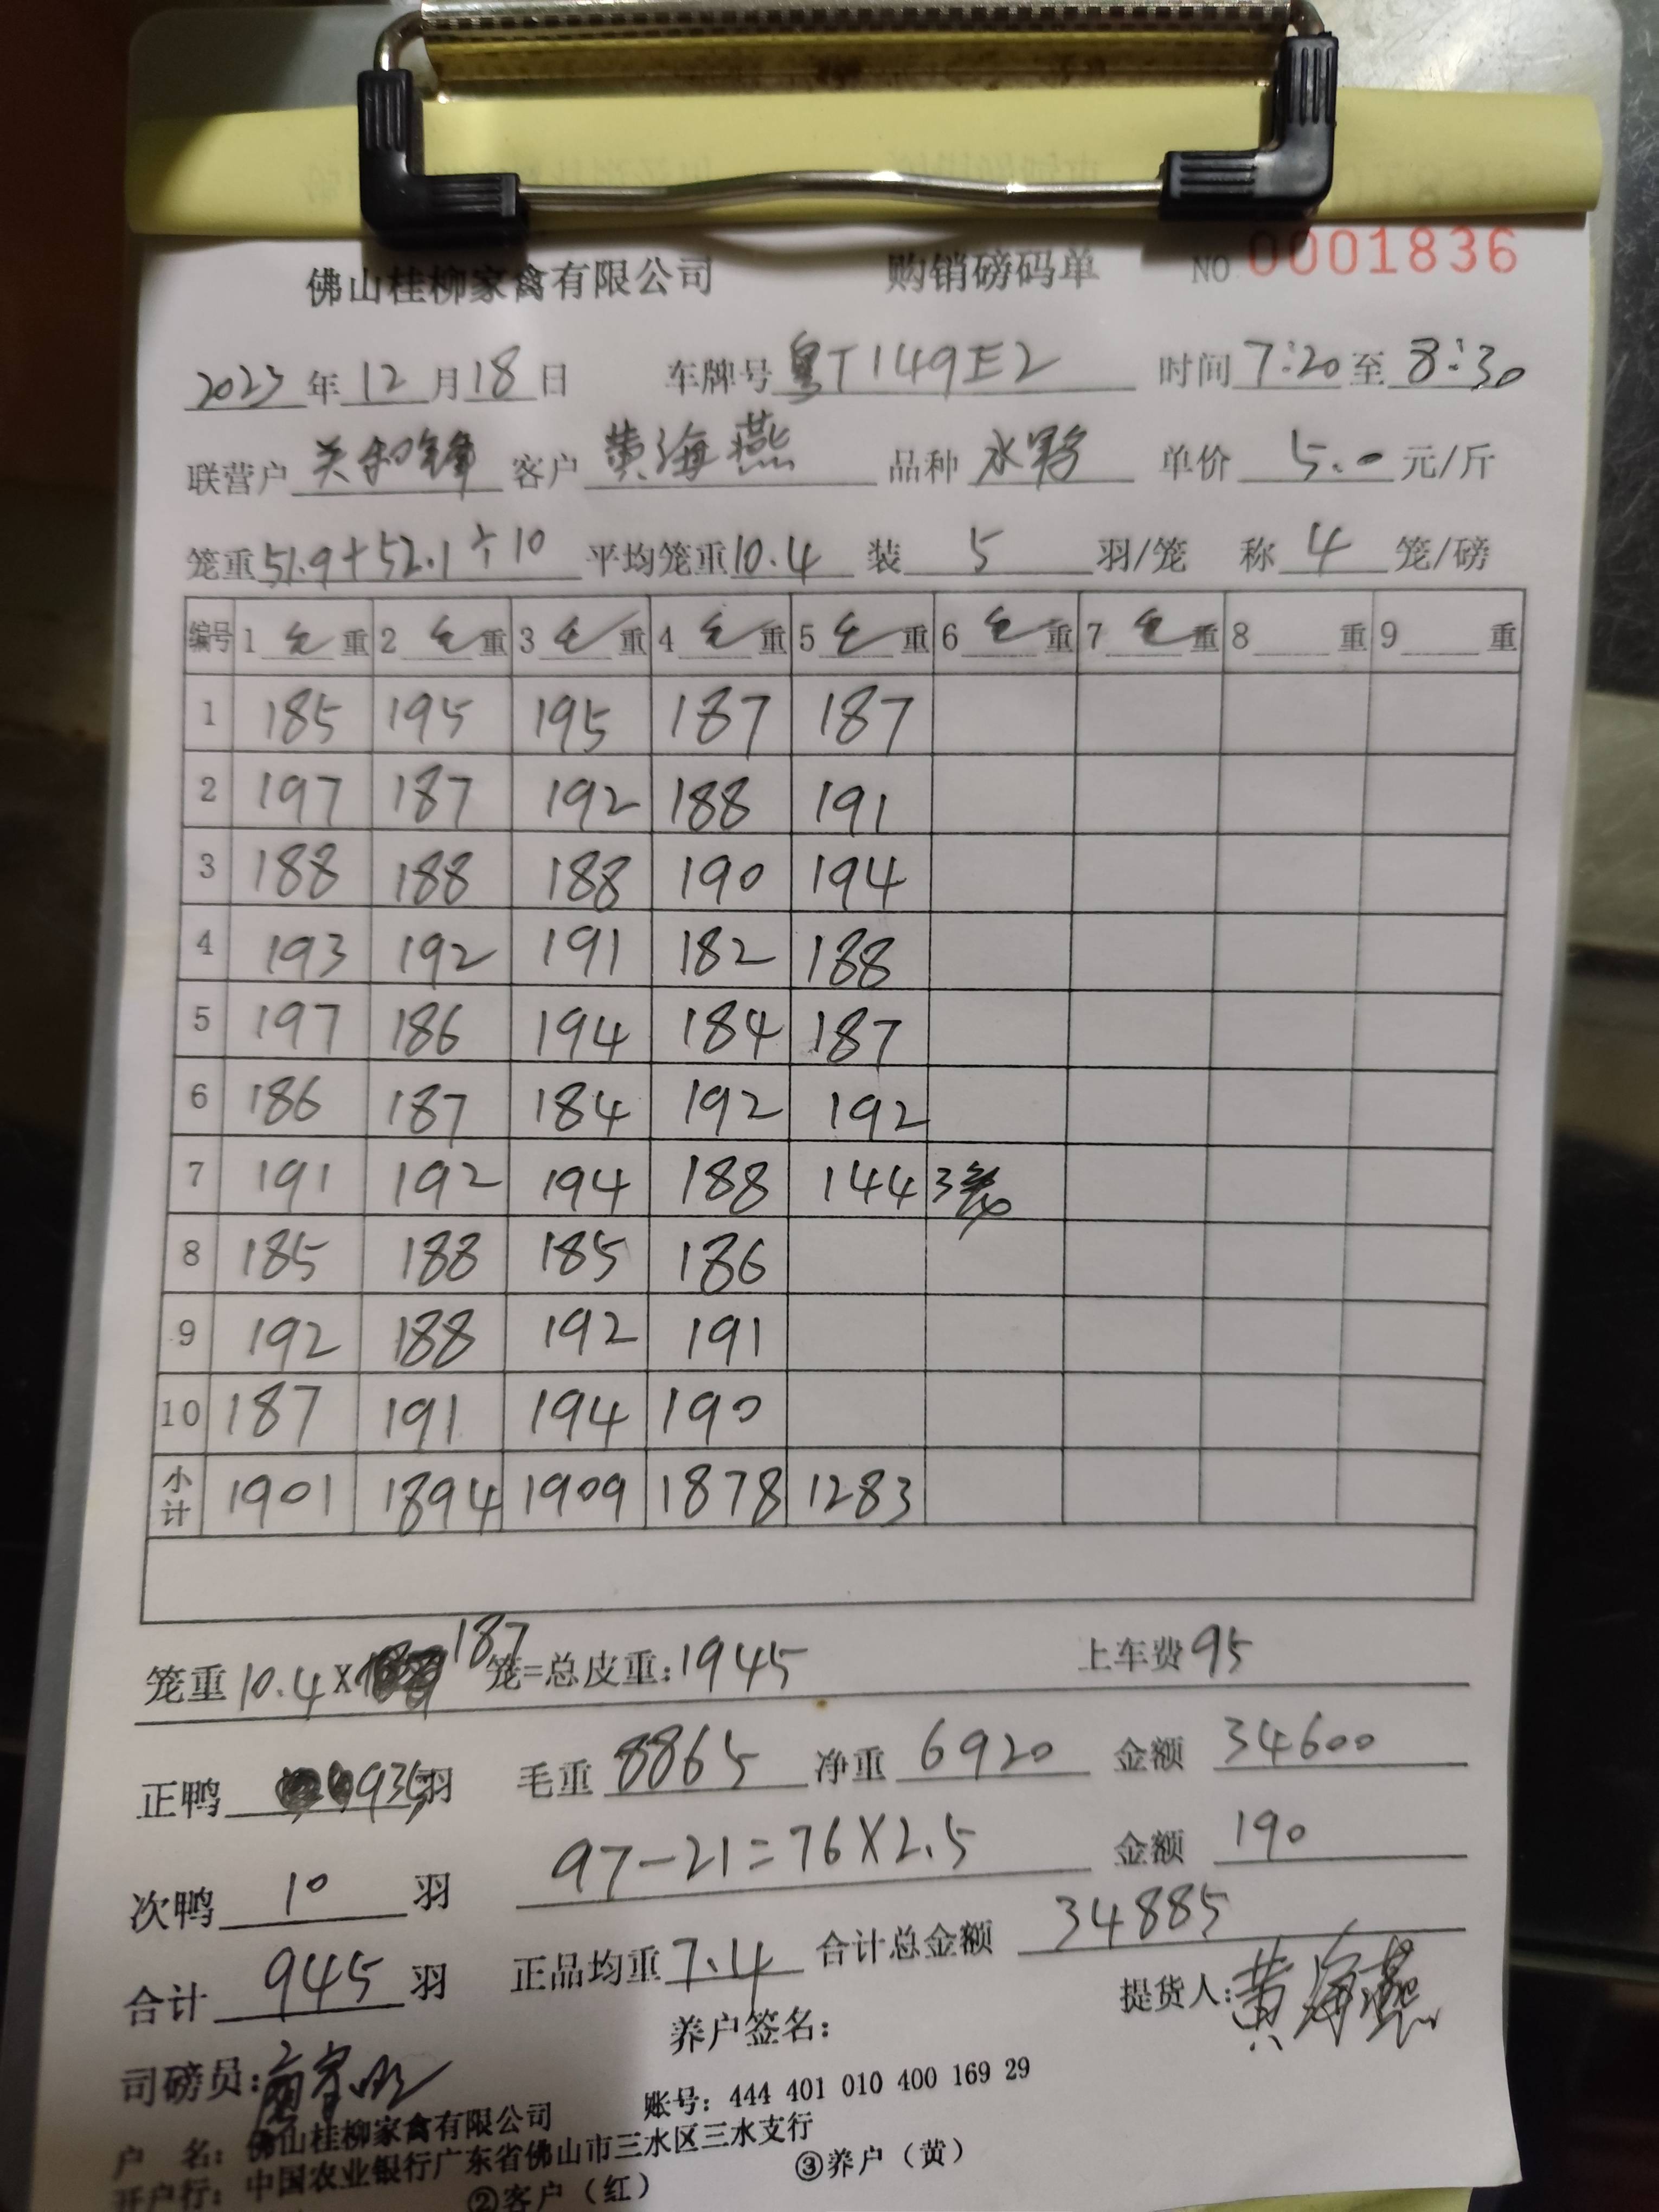 佛山桂柳家禽有限公司 购销磅码单 NO 0001836
2023年12月18日 车牌号粤T149E2 时间7:20至8:30
联营户关和锋 客户黄海燕 品种水鸭 单价5.0元/斤
笼重51.9+52.1÷10 平均笼重10.4 装5羽/笼 称4笼/磅
编号 1毛重 2毛重 3毛重 4毛重 5毛重 6毛重 7毛重 8重 9重
1 185 195 195 187 187
2 197 187 192 188 191
3 188 188 188 190 194
4 193 192 191 182 188
5 197 186 194 184 187
6 186 187 184 192 192
7 191 192 194 188 144 3笼
8 185 188 185 186
9 192 188 192 191
10 187 191 194 190
小计 1901 1894 1909 1878 1283
笼重10.4X187笼=总皮重:1945 上车费95
正鸭935羽 毛重8865 净重6920 金额34600
次鸭10羽 97-21=76X2.5 金额190
合计945羽 正品均重7.4 合计总金额34885
司磅员: 养户签名: 提货人:黄海燕
户 名: 佛山桂柳家禽有限公司 账号: 444 401 010 400 169 29
开户行: 中国农业银行广东省佛山市三水区三水支行
②客户（红） ③养户（黄）